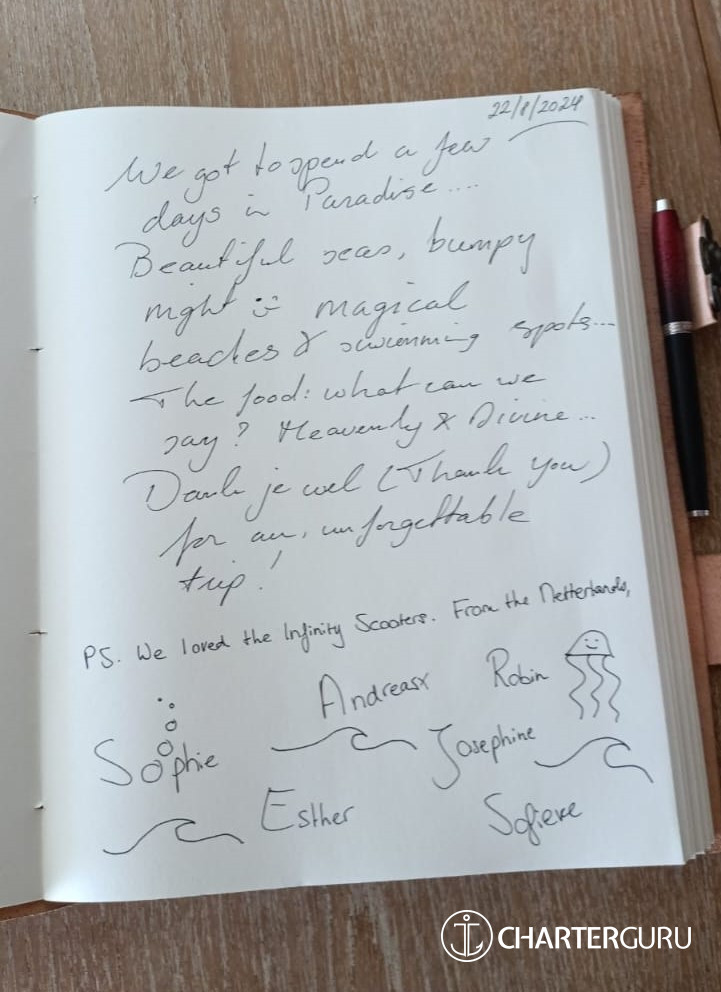 22/8/2024
We got to spend a few
days in Paradise....
Beautiful seas, bumpy
night :-) magical
beaches & swimming spots...
The food: what can we
say? Heavenly & Divine...
Dank je wel (Thank you)
for an, unforgettable
trip!
PS. We loved the Infinity Scooters. From the Netherlands,
Andreas Robin
Sophie Josephine
Esther Sofieke
CHARTERGURU